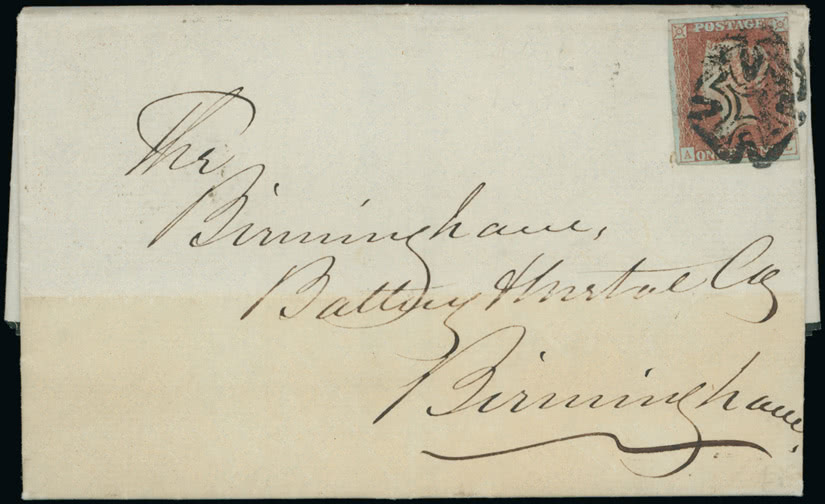 POSTAGE
A ON
The
Birmingham,
Battery & Metal Co
Birmingham,